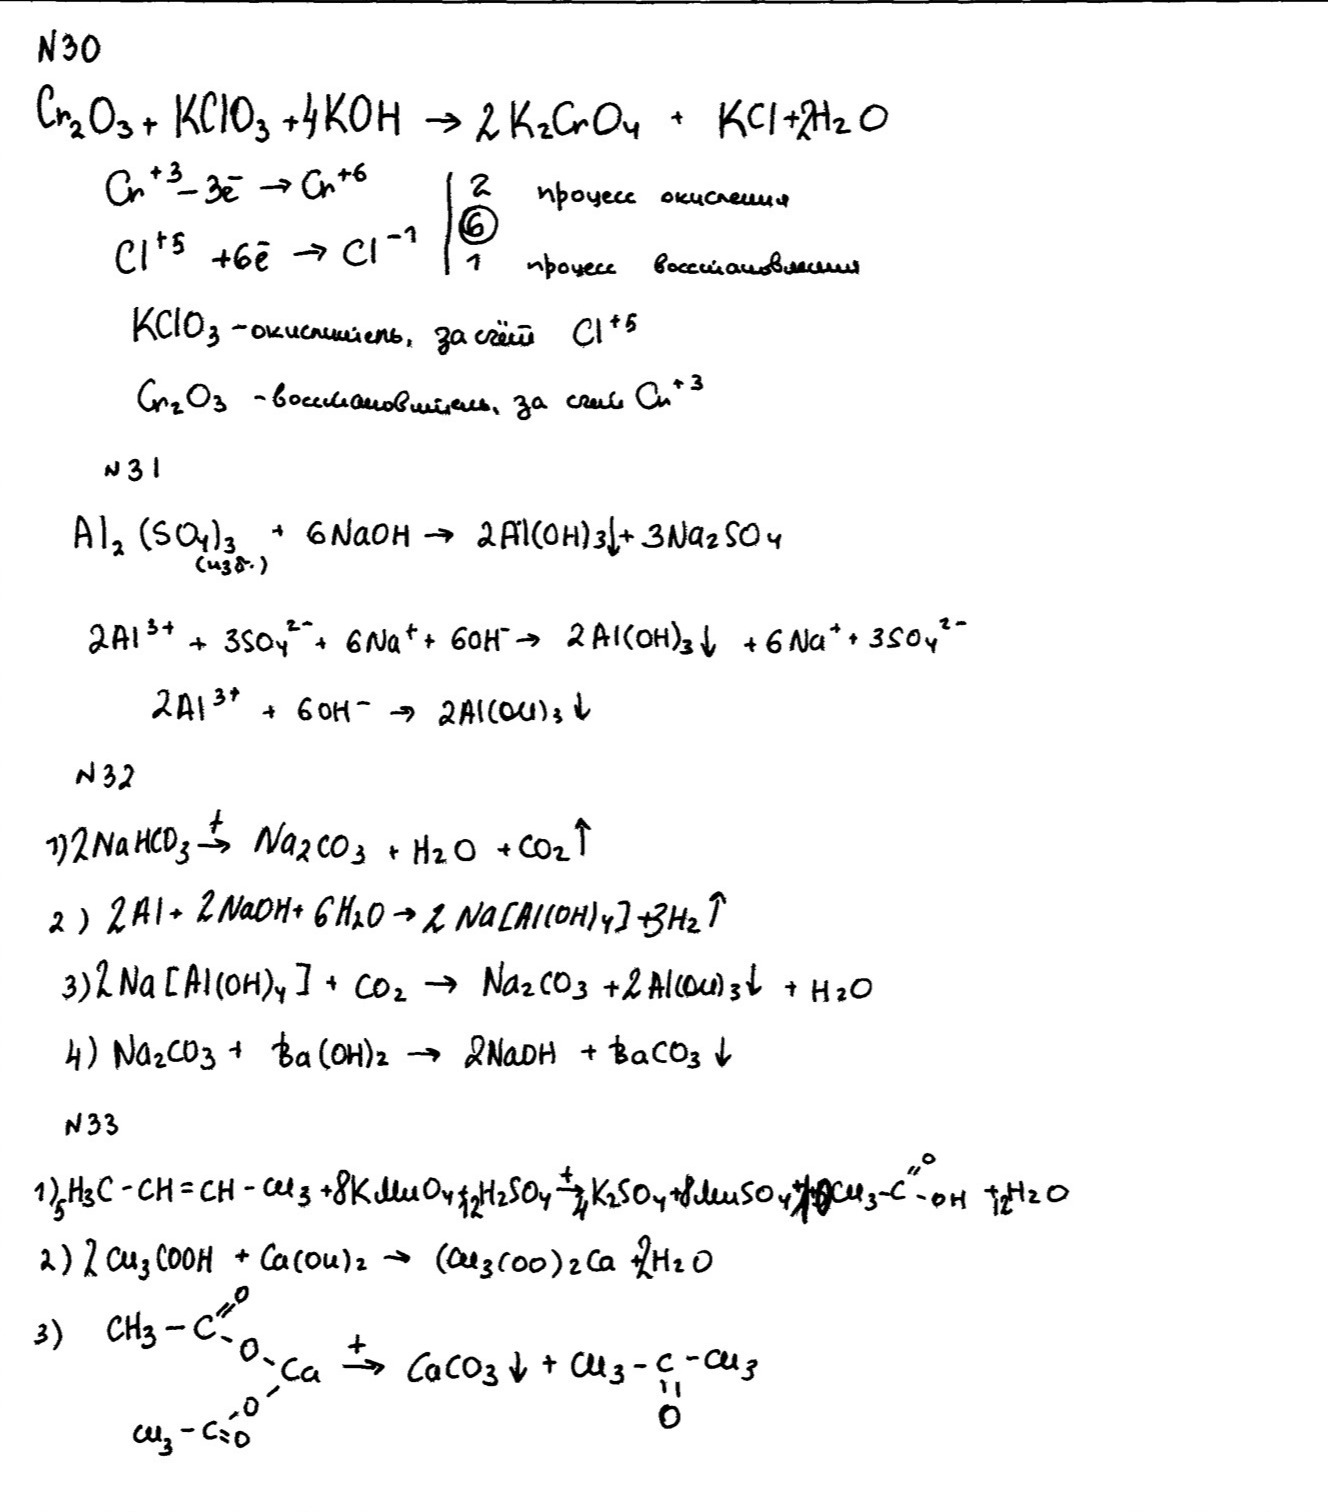 N30
Cr₂O₃ + KClO₃ + 4KOH → 2K₂CrO₄ + KCl + 2H₂O
Cr⁺³ - 3ē → Cr⁺⁶ | 2 процесс окисления
6
Cl⁺⁵ + 6ē → Cl⁻¹ | 1 процесс восстановления
KClO₃ - окислитель, за счёт Cl⁺⁵
Cr₂O₃ - восстановитель, за счёт Cr⁺³
N31
Al₂(SO₄)₃ + 6NaOH → 2Al(OH)₃↓ + 3Na₂SO₄
(изб.)
2Al³⁺ + 3SO₄²⁻ + 6Na⁺ + 6OH⁻ → 2Al(OH)₃↓ + 6Na⁺ + 3SO₄²⁻
2Al³⁺ + 6OH⁻ → 2Al(OH)₃↓
N32
1) 2NaHCO₃ →ᵗ Na₂CO₃ + H₂O + CO₂↑
2) 2Al + 2NaOH + 6H₂O → 2Na[Al(OH)₄] + 3H₂↑
3) 2Na[Al(OH)₄] + CO₂ → Na₂CO₃ + 2Al(OH)₃↓ + H₂O
4) Na₂CO₃ + Ba(OH)₂ → 2NaOH + BaCO₃↓
N33
1) 5H₃C-CH=CH-CH₃ + 8KMnO₄ + 12H₂SO₄ →ᵗ 4K₂SO₄ + 8MnSO₄ + 10CH₃-C(=O)-OH + 12H₂O
2) 2CH₃COOH + Ca(OH)₂ → (CH₃COO)₂Ca + 2H₂O
3) CH₃-C(=O)-O-Ca-O-C(=O)-CH₃ →ᵗ CaCO₃↓ + CH₃-C(=O)-CH₃